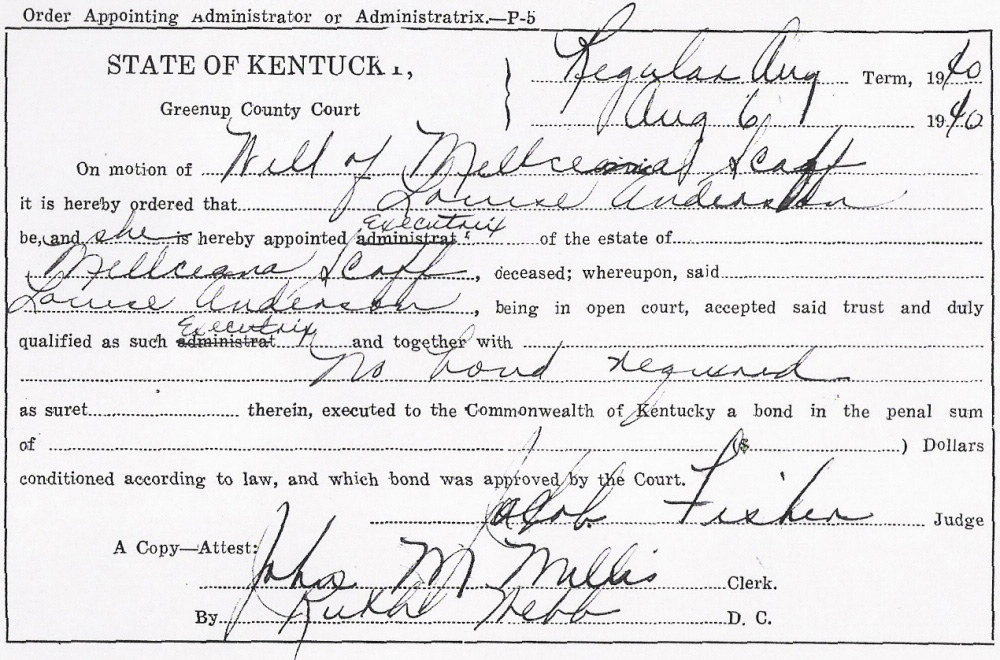 Order Appointing Administrator or Administratrix.—P-5
STATE OF KENTUCKY,
Regular Aug Term, 1940
Greenup County Court
Aug 6 1940
On motion of Will of Millceana Scaff
it is hereby ordered that Louise Anderson
Executrix
be, and she is hereby appointed administrat r of the estate of
Millceana Scaff, deceased; whereupon, said
Louise Anderson, being in open court, accepted said trust and duly
Executrix
qualified as such administrat and together with
No bond required
as suret therein, executed to the Commonwealth of Kentucky a bond in the penal sum
of ($ ) Dollars
conditioned according to law, and which bond was approved by the Court.
Jacob Fisher Judge
A Copy—Attest:
John M Millis Clerk.
By Ruth Webb D. C.